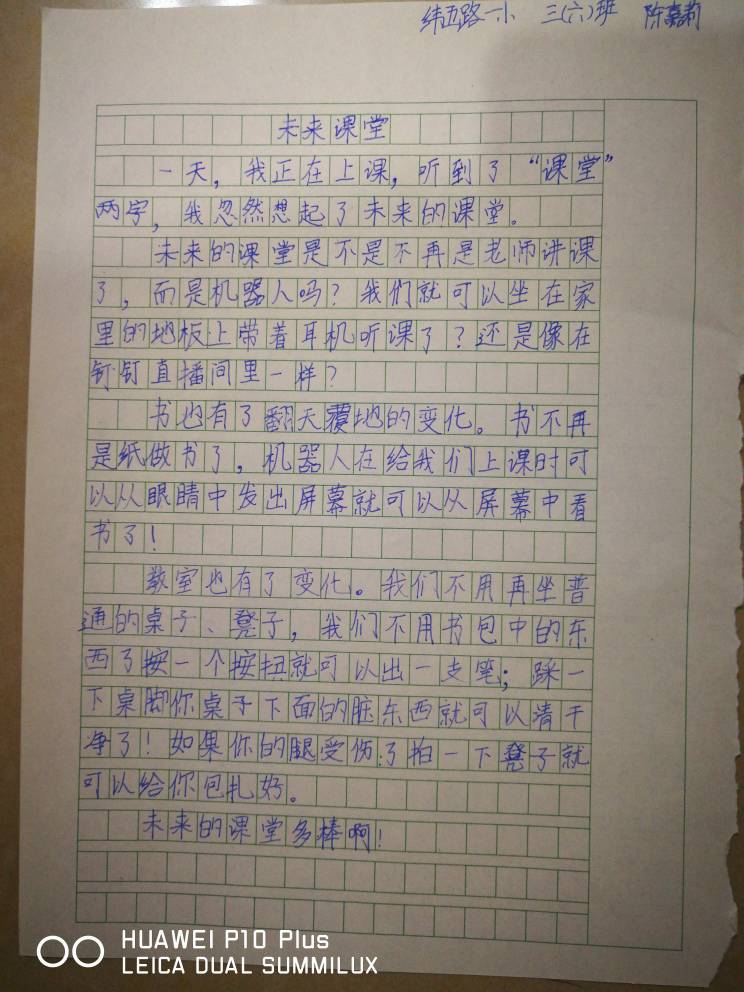 纬五路一小 三(六)班 陈嘉莉
未来课堂
一天，我正在上课，听到了“课堂”
两字，我忽然想起了未来的课堂。
未来的课堂是不是不再是老师讲课
了，而是机器人吗？我们就可以坐在家
里的地板上带着耳机听课了？还是像在
钉钉直播间里一样？
书也有了翻天覆地的变化。书不再
是纸做书了，机器人在给我们上课时可
以从眼睛中发出屏幕就可以从屏幕中看
书了！
教室也有了变化。我们不用再坐普
通的桌子、凳子，我们不用书包中的东
西了按一个按扭就可以出一支笔；踩一
下桌脚你桌子下面的脏东西就可以清干
净了！如果你的腿受伤了拍一下凳子就
可以给你包扎好。
未来的课堂多棒啊！
HUAWEI P10 Plus
LEICA DUAL SUMMILUX